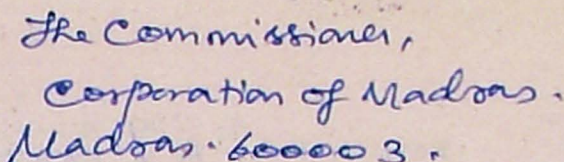 The Commissioner,
Corporation of Madras.
Madras. 600003.